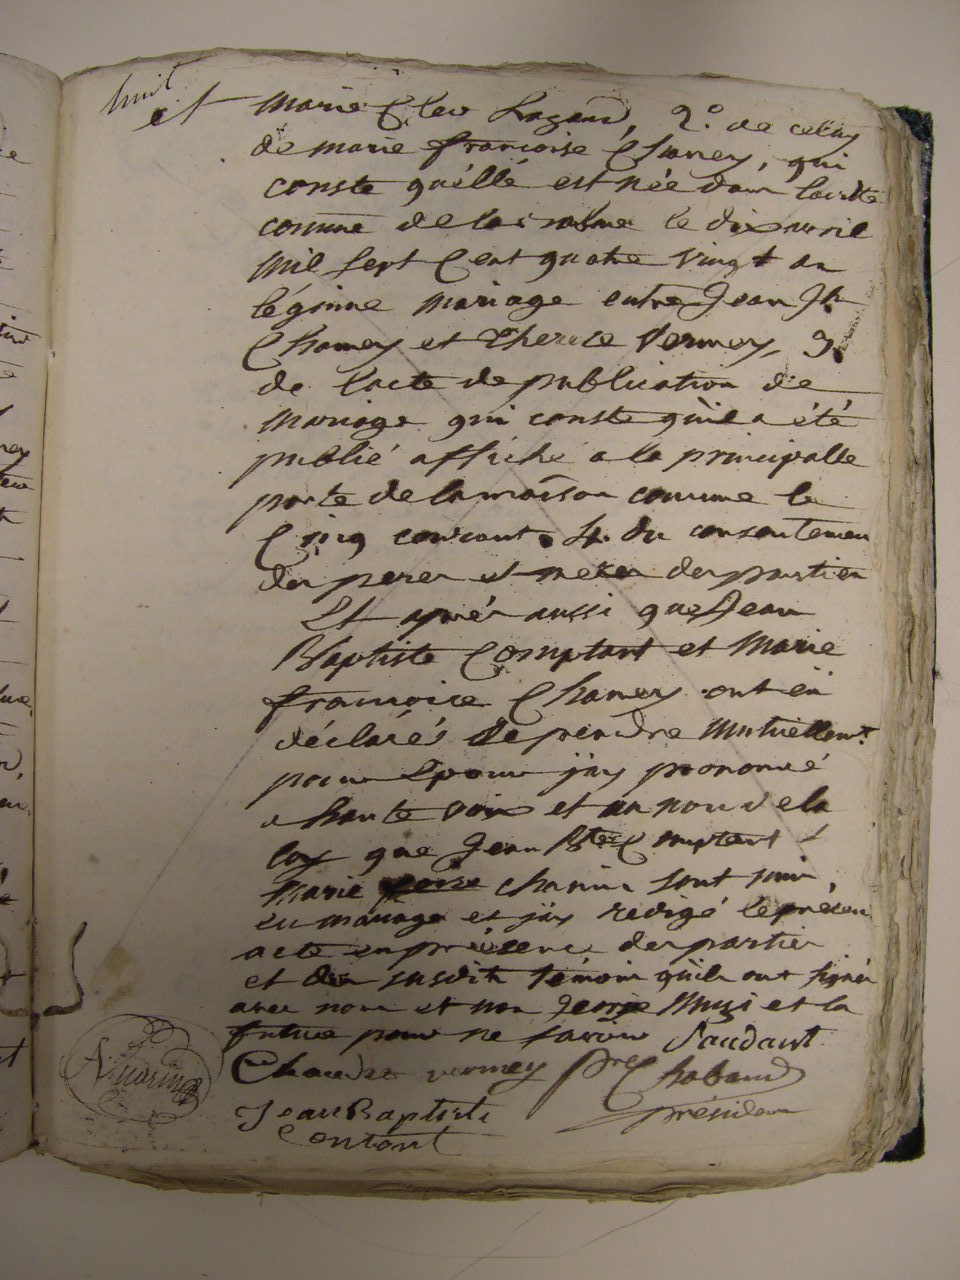 huit
et Marie Cleo Lagaud, 2.° de celuy
de marie françoise Chamey, qui
conste quéllé est née dans laditte
comune de la le dix avril
mil sept Cent quatre vingt du
légime mariage entre Jean Jh
Chamey et Therese Vermey, 3.
de l'acte de publication de
mariage qui conste quil a été
publié affiché a la principalle
porte de la maison comune le
Cinq courant. 4. du consentemen
des peres et meres des parties
Et aprés aussi que Jean
Baptiste Comptant et Marie
françoise Chamey ont eü
déclarés de prendre mutuellemt.
pour Epoux jay prononcé
a haute voix et au nom de la
loy que Jean Bte Comptant &
Marie choise chamei sont unis
en mariage et jay redigé le présen
acte en présence des parties
et des susdits témoins quils ont signés
avec nous et non et la
future pour ne savoir
Chamey vermey pre Chabaud
Jean Baptiste présiden
Contant